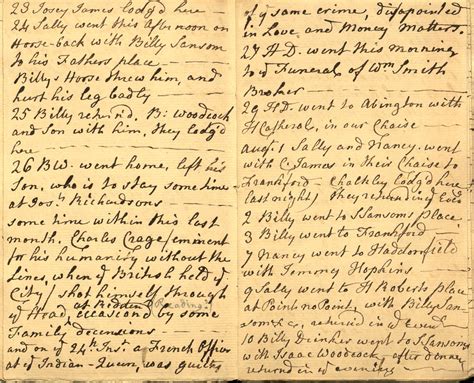 23 Josey James lodg'd here
24 Sally went this Afternoon on
Horse-back with Billy Sansom
to his Fathers place
Billy's Horse threw him, and
hurt his leg badly
25 Billy return'd, B: Woodcock
and Son with him, they lodg'd
here
26 BW. went home, left his
Son, who is to stay some time
at Jos: Richardsons
some time within this last
month, Charles Crage/eminent
for his humanity without the
Lines, when ye British held ye
City/ shot himself through
at Reading
ye Head, occasion'd by some
Family Decensions
and on ye 24th Inst. a French Officer
at ye Indian-Queen, was guilty
of ye same crime, disapointed
in Love, and Money Matters.
27 HD. went this Morning
to ye Funeral of Wm Smith
Broker
29 HD. went to Abington with
H Catheral, in our Chaise
Augt. 1 Sally and Nancy went
with C James in their Chaise to
Frankford Chalkley lodg'd here
last night/ they return'd
2 Billy went to S Sansoms place
3 Billy went to Frankford
7 Nancy went to Haddonfield
with Tommy Hopkins
9 Sally went to H Roberts place
at Point no Point, with Billy San-
som &c, return'd in ye Even
10 Billy Drinker went to S Sansoms
with Isaac Woodcock, after dinner,
return'd in ye evening